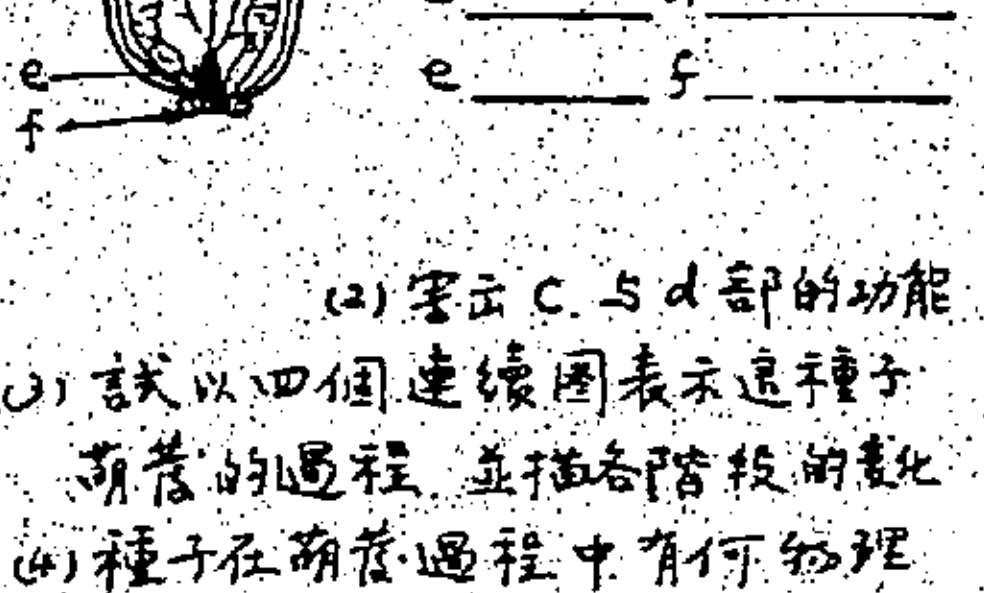 e e f
f
(2) 寫出 C. 与 d 部的功能
(3) 試以四個連續圖表示這種子
萌發的過程. 並描各階段的變化
(4) 種子在萌發過程中有何物理